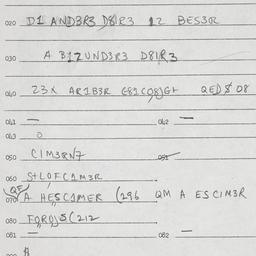 020 D1 AND3R3 D8/R3 12 BES3R
030 A B12UND3R3 D8/R3
040 23X AR1B3R G81C08)G+ QED$ 08
041 — 042 —
043 0
050 C1M3RN7 051
060 S+LOFC1M3R
QF
070 A HESC1MER (296 QM A ESC1M3R
080 FOROJS(212
081 — 082 —